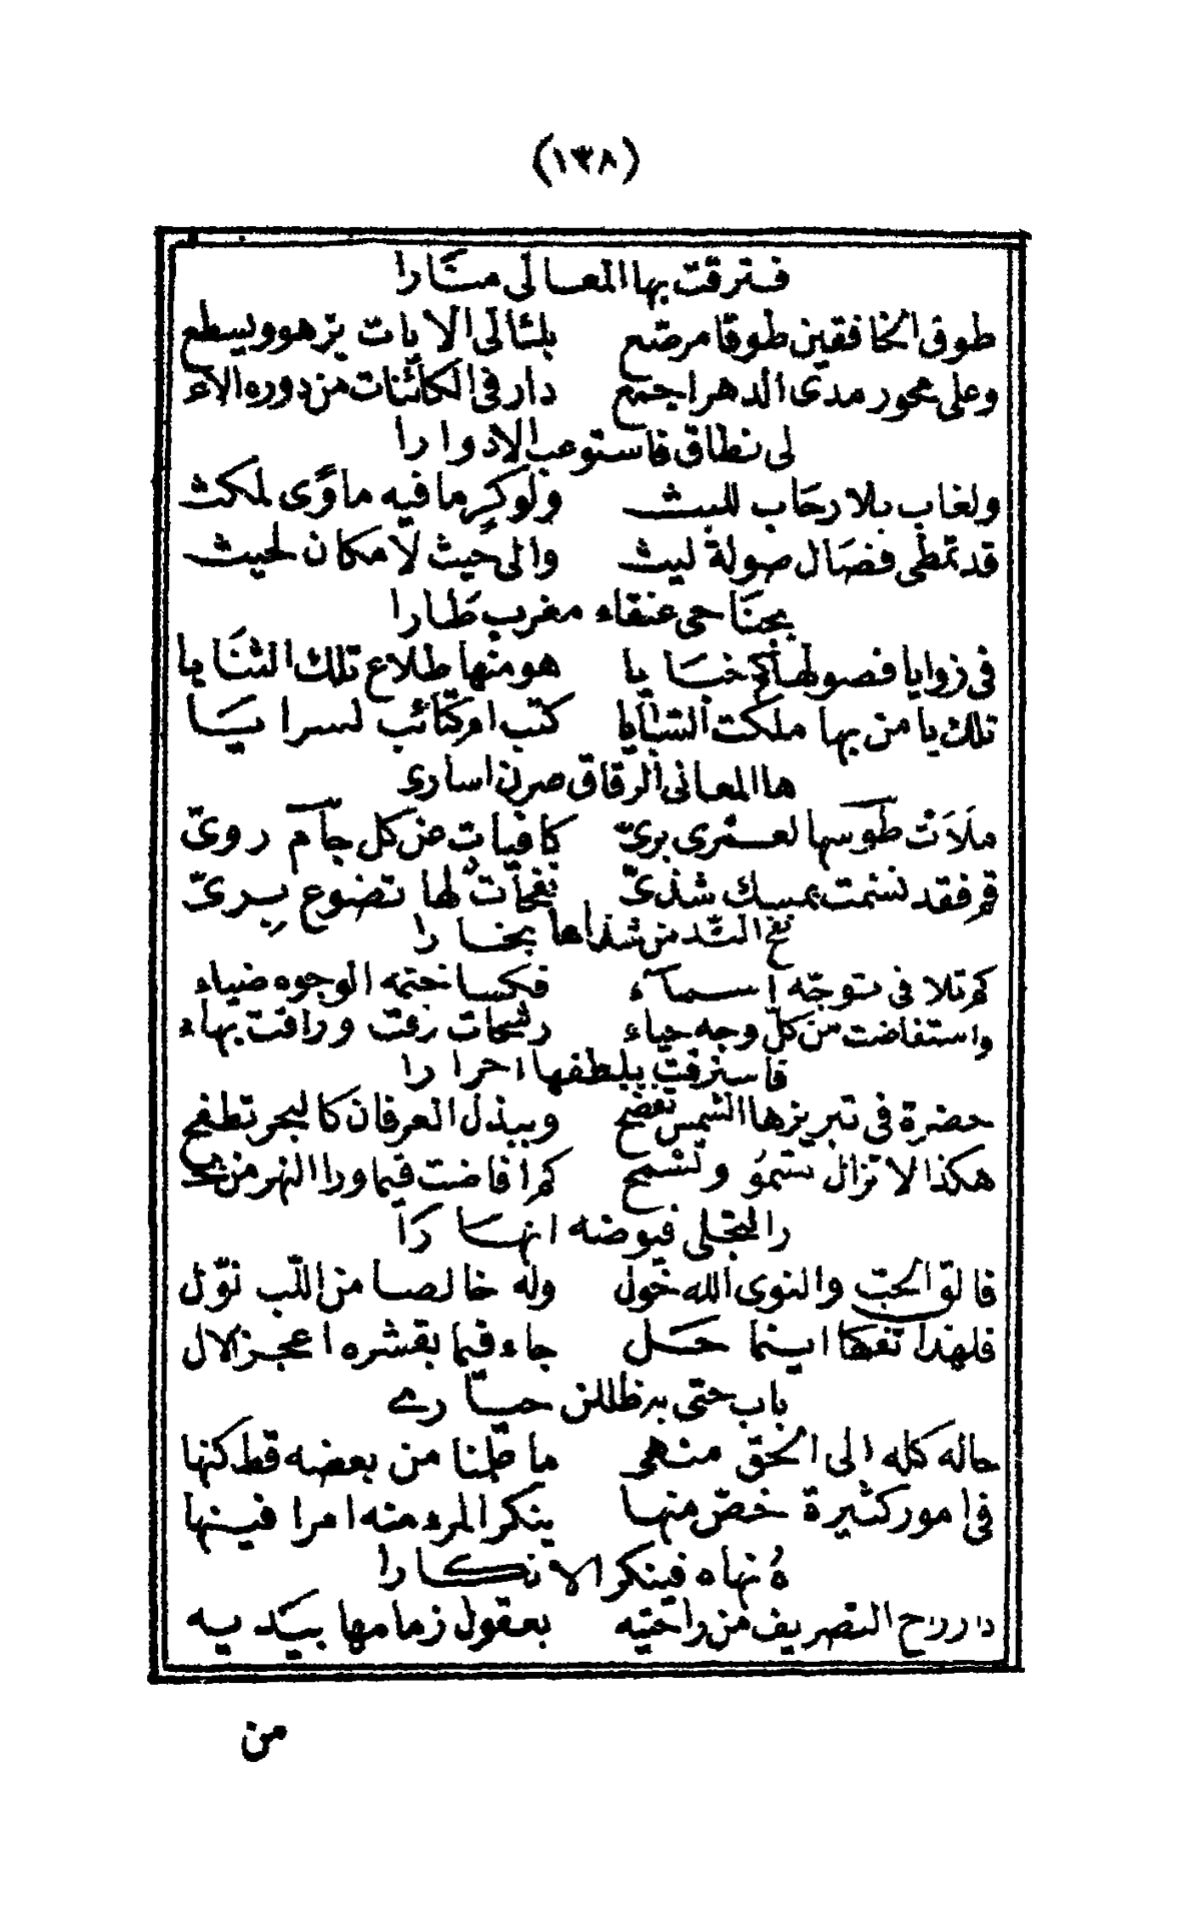 (١٣٨)
فترقت بها المعالى منارا
طوق الخافقين طوقا مرصّع بلئالى الايات يزهو ويسطع
وعلى محور مدى الدهر اجمع دار فى الكائنات من دوره الاء
لى نطاق فاستوعب الادوارا
ولغاب بلا رحاب للبث ولوكر ما فيه مأوى لمكث
قد تمطى فصال صولة ليث والى حيث لا مكان لحيث
بجناحى عنقاء مغرب طارا
فى زوايا فصولها كم خبايا هو منها طلاع تلك الثنايا
تلك يا من بها ملكت السبايا كتب ام كتائب لسرايا
ها المعانى الرقاق صرن اسارى
ملأت طوسها لعمرى برىّ كافيات عن كل جام روىّ
قم فقد نسمت بمسك شذىّ نفحات لها تضوع برىّ
نفح الند من شذاها بخارا
كم تلا فى توجّه اسماء فكسا ختمه الوجوه ضياء
واستفاضت من كلّ وجه حياء رشحات رقت وراقت بهاء
فاسترقت بلطفها احرارا
حضرة فى تبريزها الشمس تفضح وببذل العرفان كالبحر تطفح
هكذا لا تزال تسمو وتسمح كم افاضت فيما ورا النهر من بحـ
ر التجلى فيوضه انهارا
فالق الحبّ والنوى الله خول وله خالصا من اللّب نوّل
فلهذا تفكها اينما حل جاء فيما بقشره اعجز الال
باب حتى به ظللن حيارے
حاله كله الى الحق منهى ما ظننا من بعضه قط كنها
فى امور كثيرة خصّ منها ينكر المرء منه امرا فينها
هُ نهاه فينكر الانكارا
دار راح التصريف من راحتيه بعقول زمامها بيديه
من